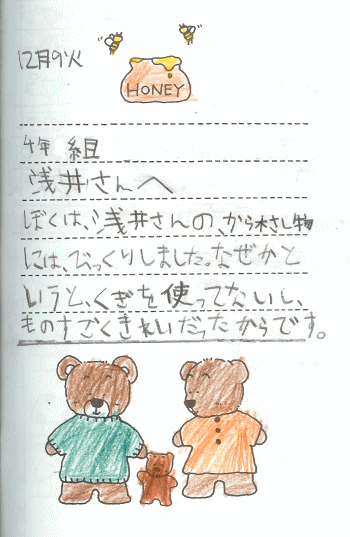 12月9火
HONEY
4年 組
浅井さんへ
ぼくは、浅井さんの、からくさし物
には、びっくりしました。なぜかと
いうと、くぎを使ってないし、
ものすごくきれいだったからです。